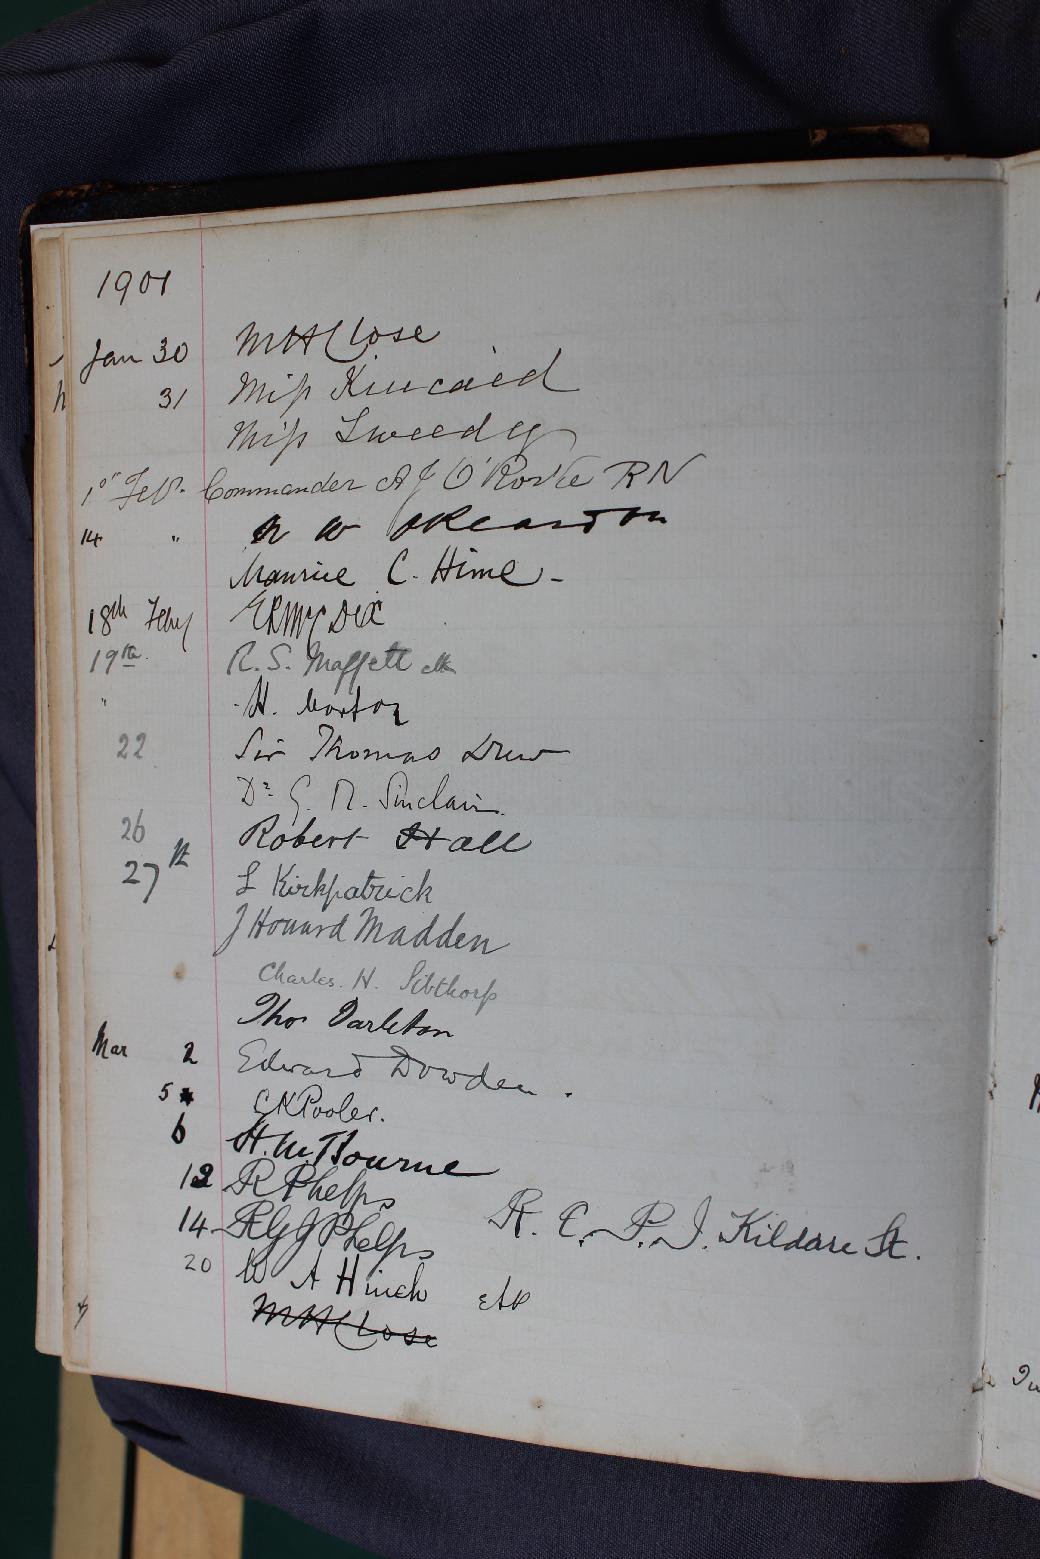 1901
Jan 30 MHClose
31 Miss Kincaid
Miss Tweedy
1st Feb. Commander A J O'Rorke RN
14 "
Maurice C. Hime -
18th Feby ERMcC Dix
19th R.S. Maffett
" H. Morton
22 Sir Thomas Drew
Dr. G. M. Sinclair
26 Robert Hall
27th L Kirkpatrick
J Howard Madden
Charles. H. Sibthorp
Thos Tarleton
Mar 2 Edward Dowden.
5 C K Pooler.
6 H. M. Bourne
12 R Phelps
14 R G J Phelps R. C. P. I. Kildare St.
20 W A Hinch
MHClose